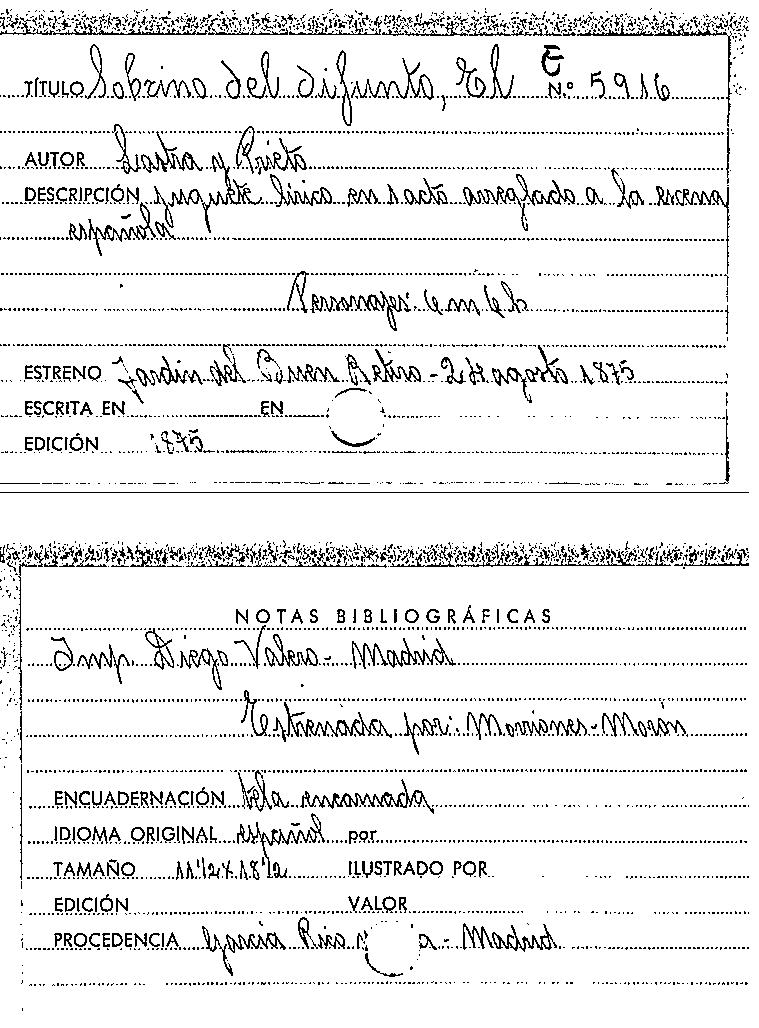 TÍTULO Sobrino del difunto, El E N.º 5916
AUTOR Lastra y Prieto
DESCRIPCIÓN juguete lírico en 1 acto arreglado a la escena
española
Personajes: 6 m 6 h
ESTRENO Jardín del Buen Retiro - 2 de agosto 1875
ESCRITA EN EN
EDICIÓN 1875
NOTAS BIBLIOGRÁFICAS
Imp. Diego Valero - Madrid
Estrenada por: Morriones - Morón
ENCUADERNACIÓN tela encarnada
IDIOMA ORIGINAL español por
TAMAÑO 11 1/2 x 18 1/2 ILUSTRADO POR
EDICIÓN VALOR
PROCEDENCIA García Rico y a - Madrid